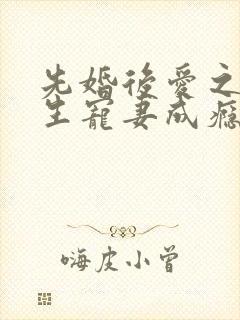 先婚後愛之
生寵妻成癮
嗨皮小曾